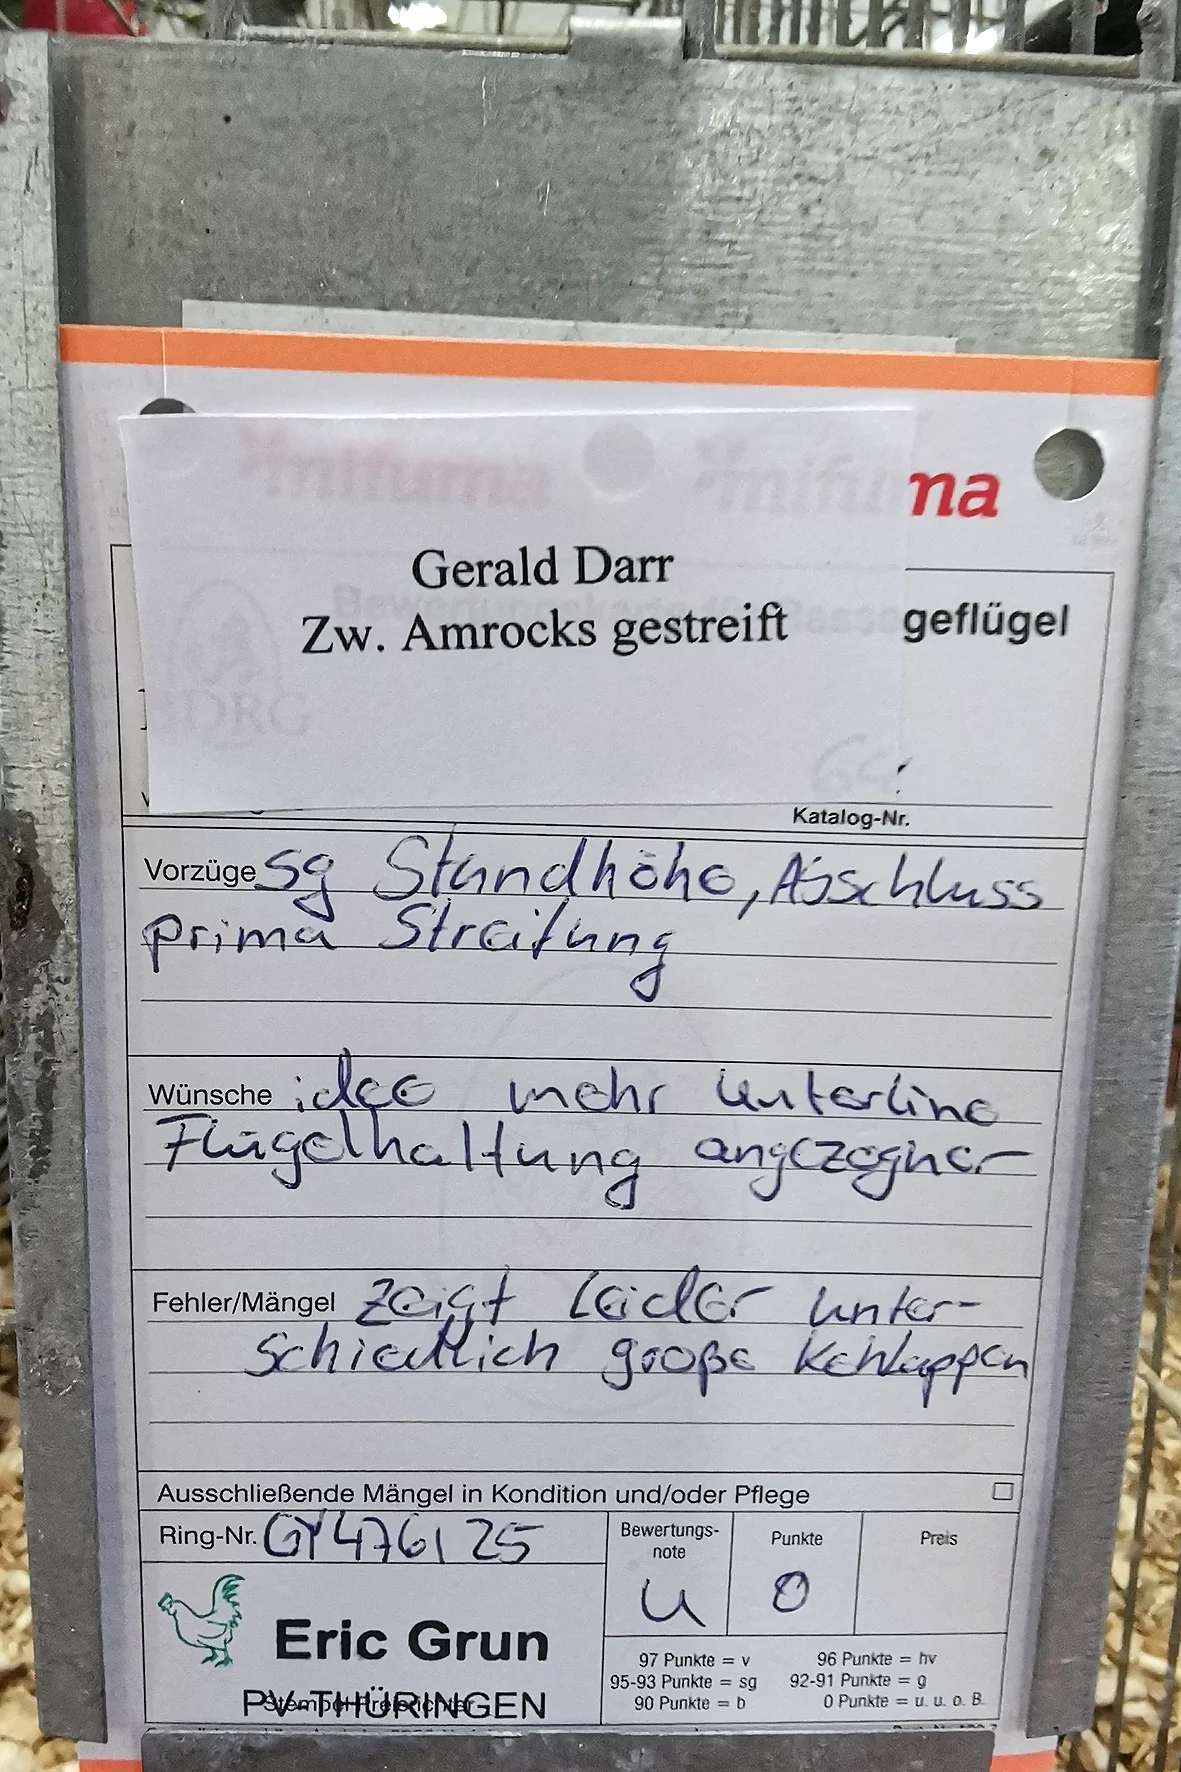 ma
Gerald Darr
Zw. Amrocks gestreift
geflügel
BDRG
Katalog-Nr.
Vorzüge sg Standhöhe, Abschluss
prima Streifung
Wünsche idee mehr Unterlinie
Flügelhaltung angezogner
Fehler/Mängel zeigt leider unter-
schiedlich große Kehlappen
Ausschließende Mängel in Kondition und/oder Pflege
Ring-Nr. GY476 | 25
Bewertungs-
note
u
Punkte
0
Preis
Eric Grun
PV-THÜRINGEN
97 Punkte = v 96 Punkte = hv
95-93 Punkte = sg 92-91 Punkte = g
90 Punkte = b 0 Punkte = u. u. o. B.